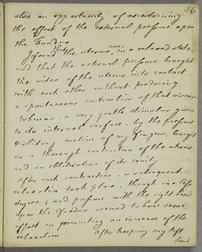 56
also an opportunity of ascertaining
the effect of the external pressure upon
the Fundus.
I found the uterus in a relaxed state,
and that the external pressure brought
the sides of the uterus into contact
with each other without producing
a spontaneous contraction of that viscus
whereas a very gentle stimulus given
to its internal surface, by the pressure
& sliding motion of my fingers, brought
on a thorough contraction of the uterus
and an obliteration of its cavity.
After such contraction, a subsequent
relaxation took place, though in a less
degree; and pressure with the right hand
upon the Fundus seemed to have some
effect in preventing an increase of the
relaxation. After keeping my left
hand